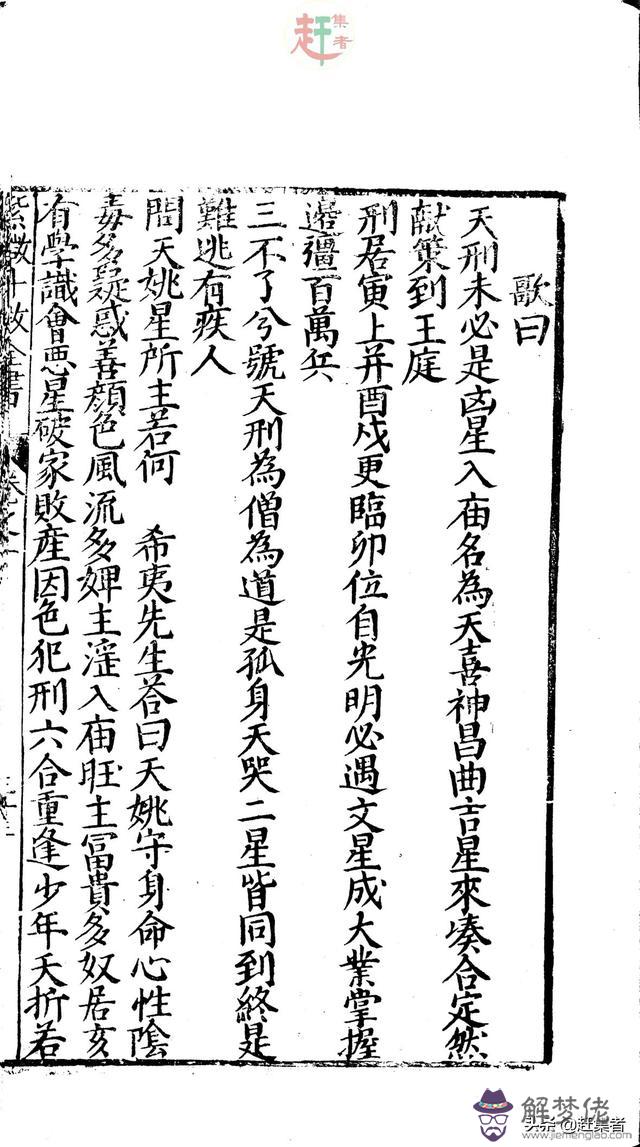 赶集者
歌曰
天刑未必是凶星入庙名為天喜神昌曲吉星來凑合定然
献策到王庭
刑居寅上并酉戌更臨卯位自光明必遇文星成大業掌握
邉彊百萬兵
三不了兮號天刑為僧為道是孤身天哭二星皆同到終是
難逃有疾人
問天姚星所主若何　希夷先生荅曰天姚守身命心性陰
毒多疑惑善顔色風流多婢主淫入庙旺主富貴多奴居亥
有學識會惡星破家敗産因色犯刑六合重逢少年夭折若
紫微斗数全書
卷之
解梦佬
www.jiemenglao.com
头条@赶集者